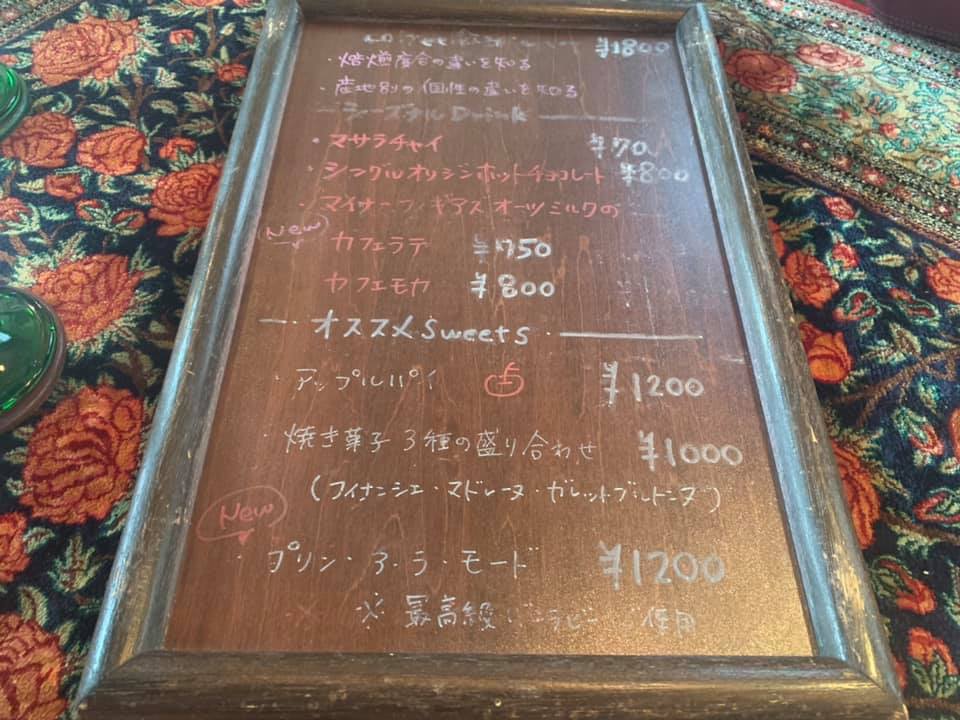 ¥1800
・焙煎度合の違いを知る
・産地別の個性の違いを知る
シーズナルDrink
・マサラチャイ ¥70
・シングルオリジンホットチョコレート ¥800
・マイナーフィギアズオーツミルクの
New カフェラテ ¥750
カフェモカ ¥800
オススメSweets
・アップルパイ ¥1200
・焼き菓子3種の盛り合わせ ¥1000
(フィナンシェ・マドレーヌ・ガレットブルトンヌ)
New
・プリン・ア・ラ・モード ¥1200
※最高級 使用